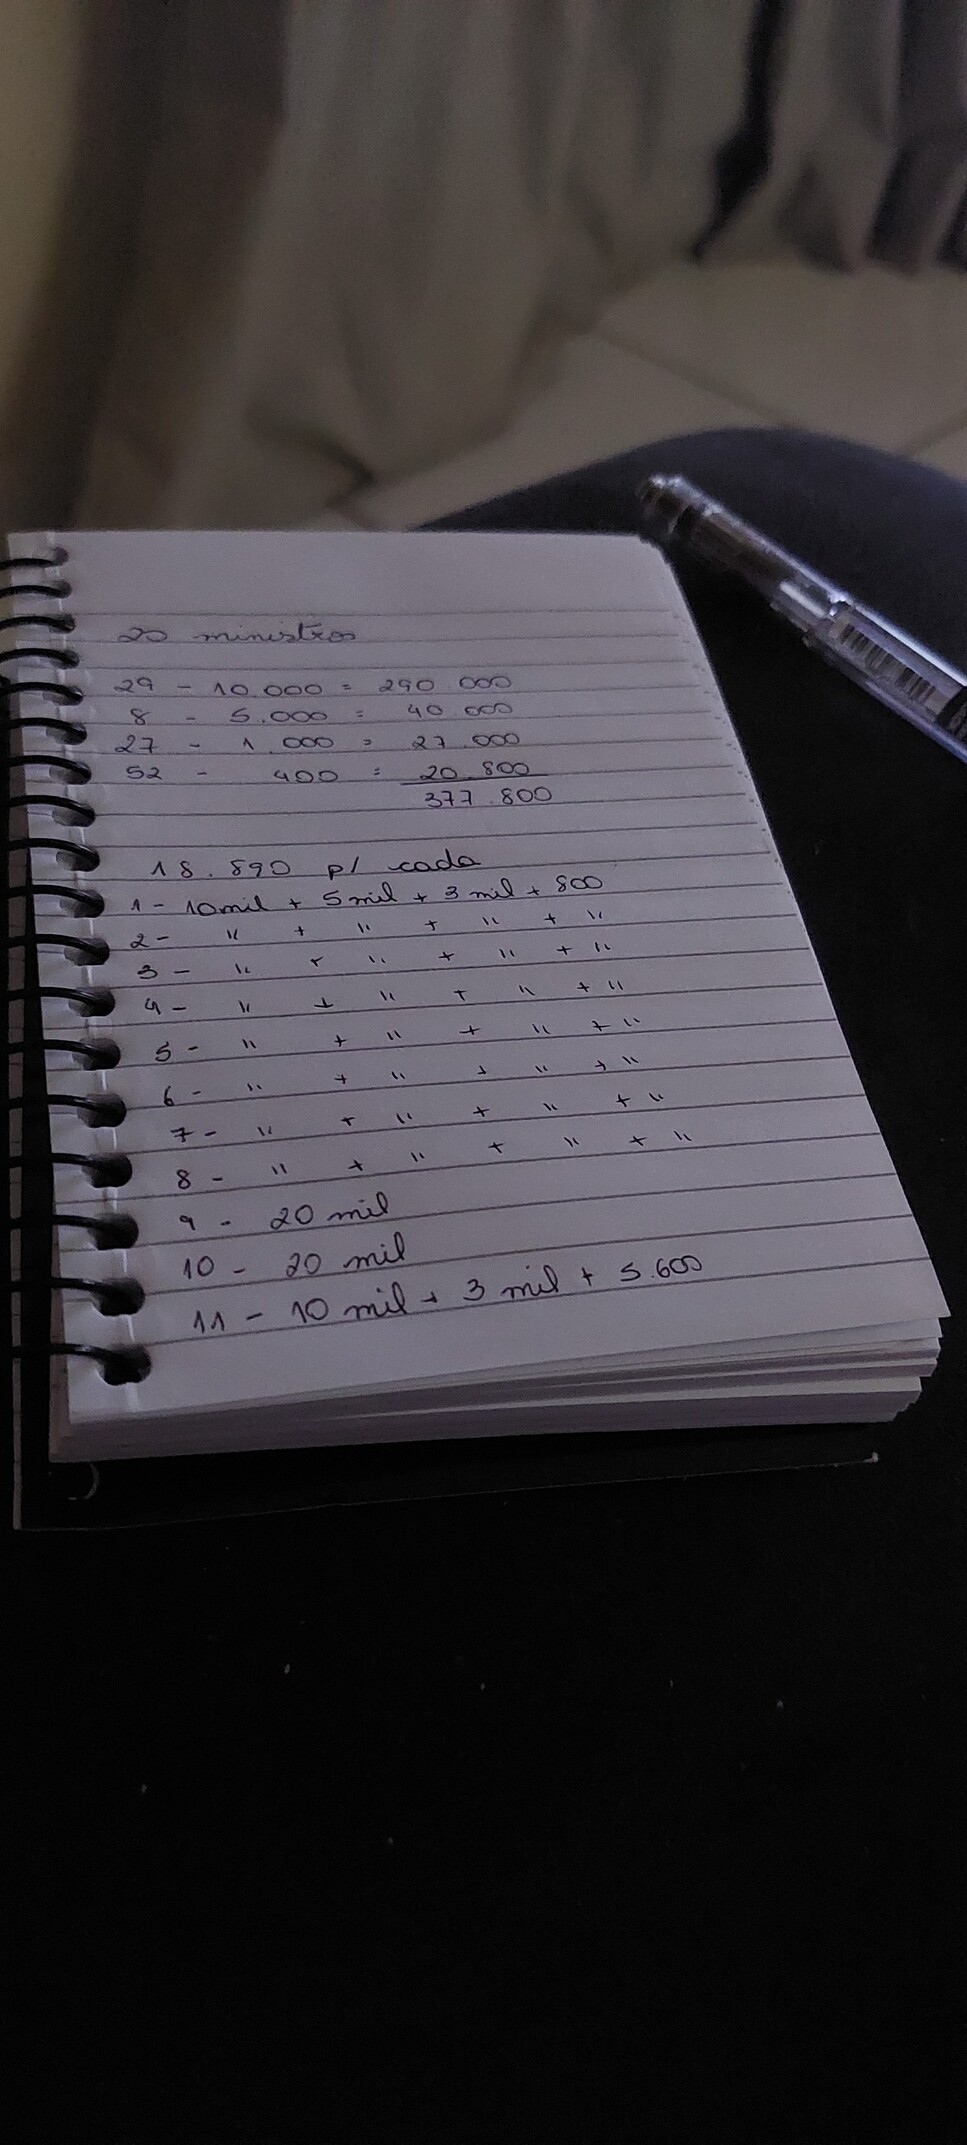 20 ministros
29 - 10.000 = 290.000
8 - 5.000 = 40.000
27 - 1.000 = 27.000
52 - 400 = 20.800
377.800
18.890 p/ cada
1 - 10mil + 5mil + 3mil + 800
2 - " + " + " + "
3 - " + " + " + "
4 - " + " + " + "
5 - " + " + " + "
6 - " + " + " + "
7 - " + " + " + "
8 - " + " + " + "
9 - 20 mil
10 - 20 mil
11 - 10 mil + 3 mil + 5.600